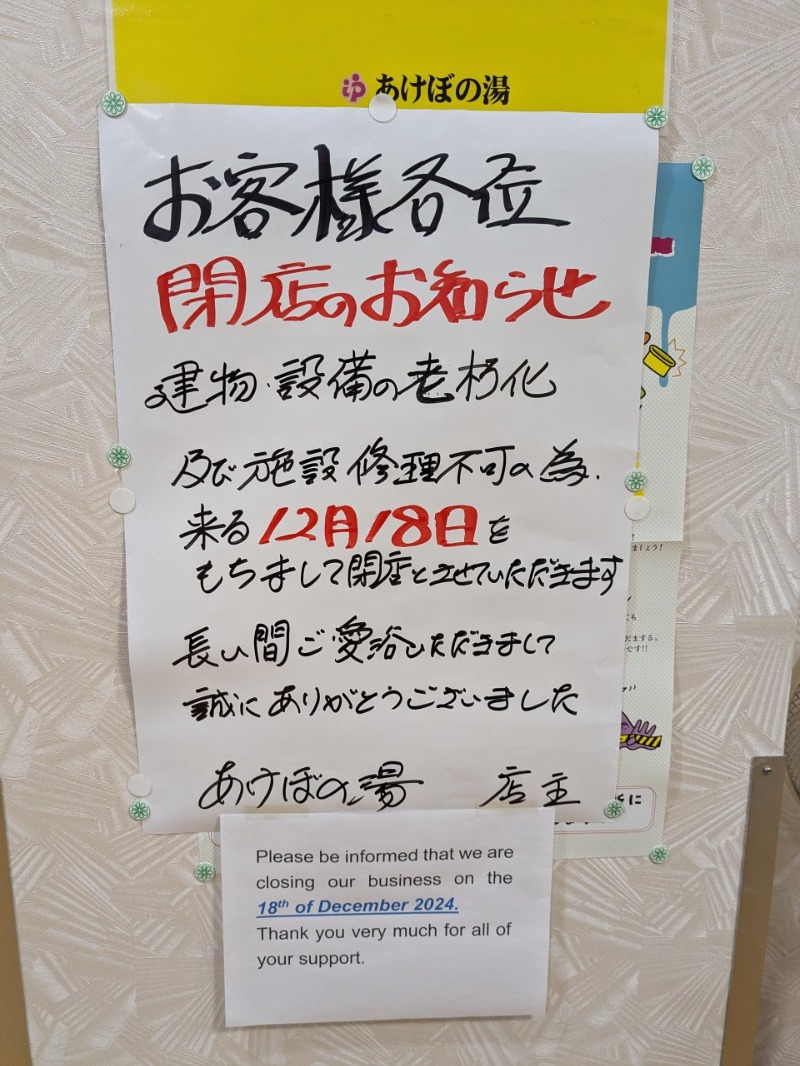 あけぼの湯
お客様各位
閉店のお知らせ
建物・設備の老朽化
及び施設修理不可の為、
来る12月18日を
もちまして閉店とさせていただきます
長い間ご愛浴いただきまして
誠にありがとうございました
あけぼの湯 店主
Please be informed that we are
closing our business on the
18th of December 2024.
Thank you very much for all of
your support.